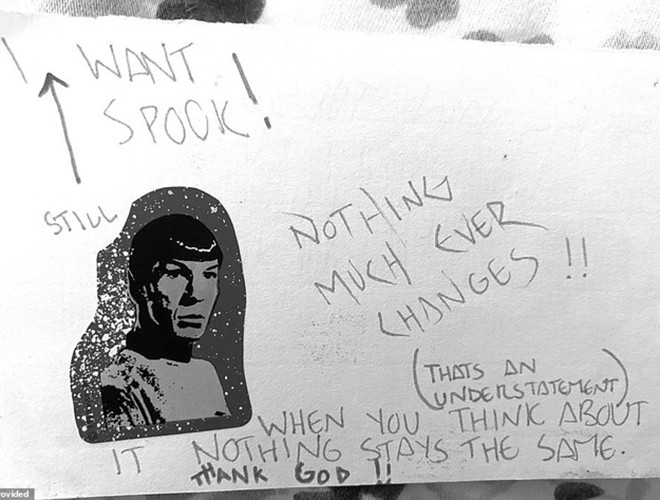 I WANT
SPOOK!
STILL
NOTHING
MUCH EVER
CHANGES!!
(THATS AN
UNDERSTATEMENT)
WHEN YOU THINK ABOUT
IT NOTHING STAYS THE SAME.
THANK GOD!!
rovided